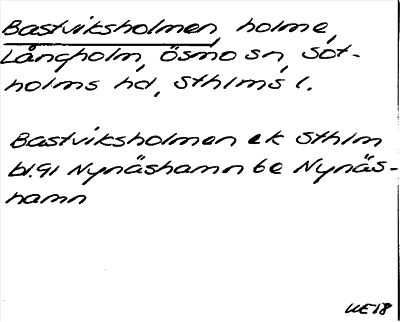 Bastviksholmen, holme,
Långholm, Ösmo sn, Sot-
holms hd, Sthlms l.
Bastviksholmen ek Sthlm
bl.91 Nynäshamn 6e Nynäs-
hamn
UE18